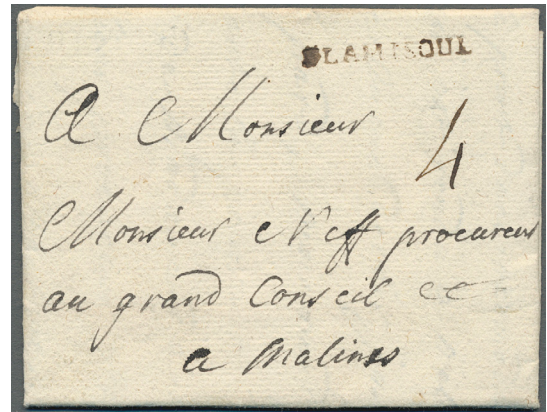 FLAMISOUL
A Monsieur
4
Monsieur Neff procureur
au grand Conseil etc
a Malines